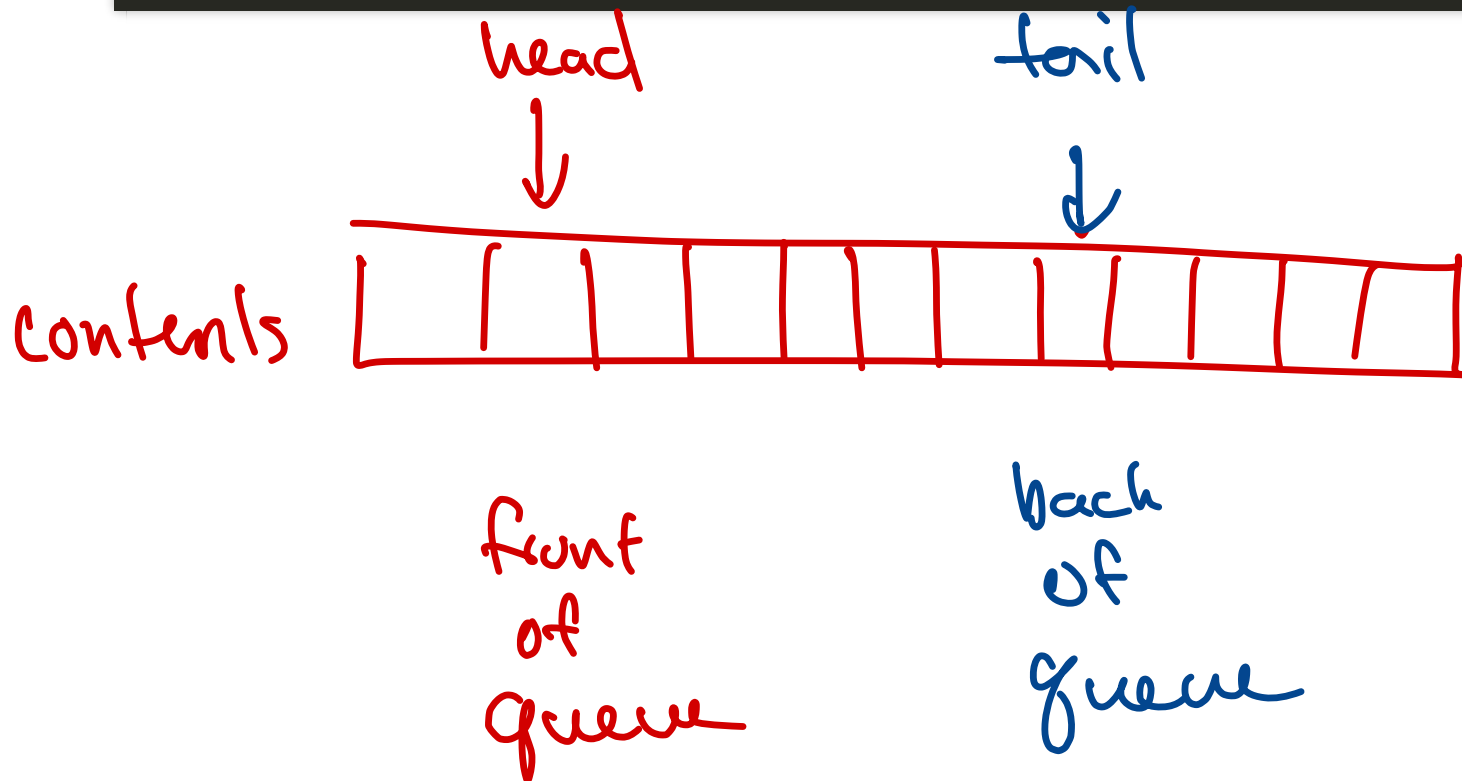 head
tail
contents
front
of
queue
back
of
queue